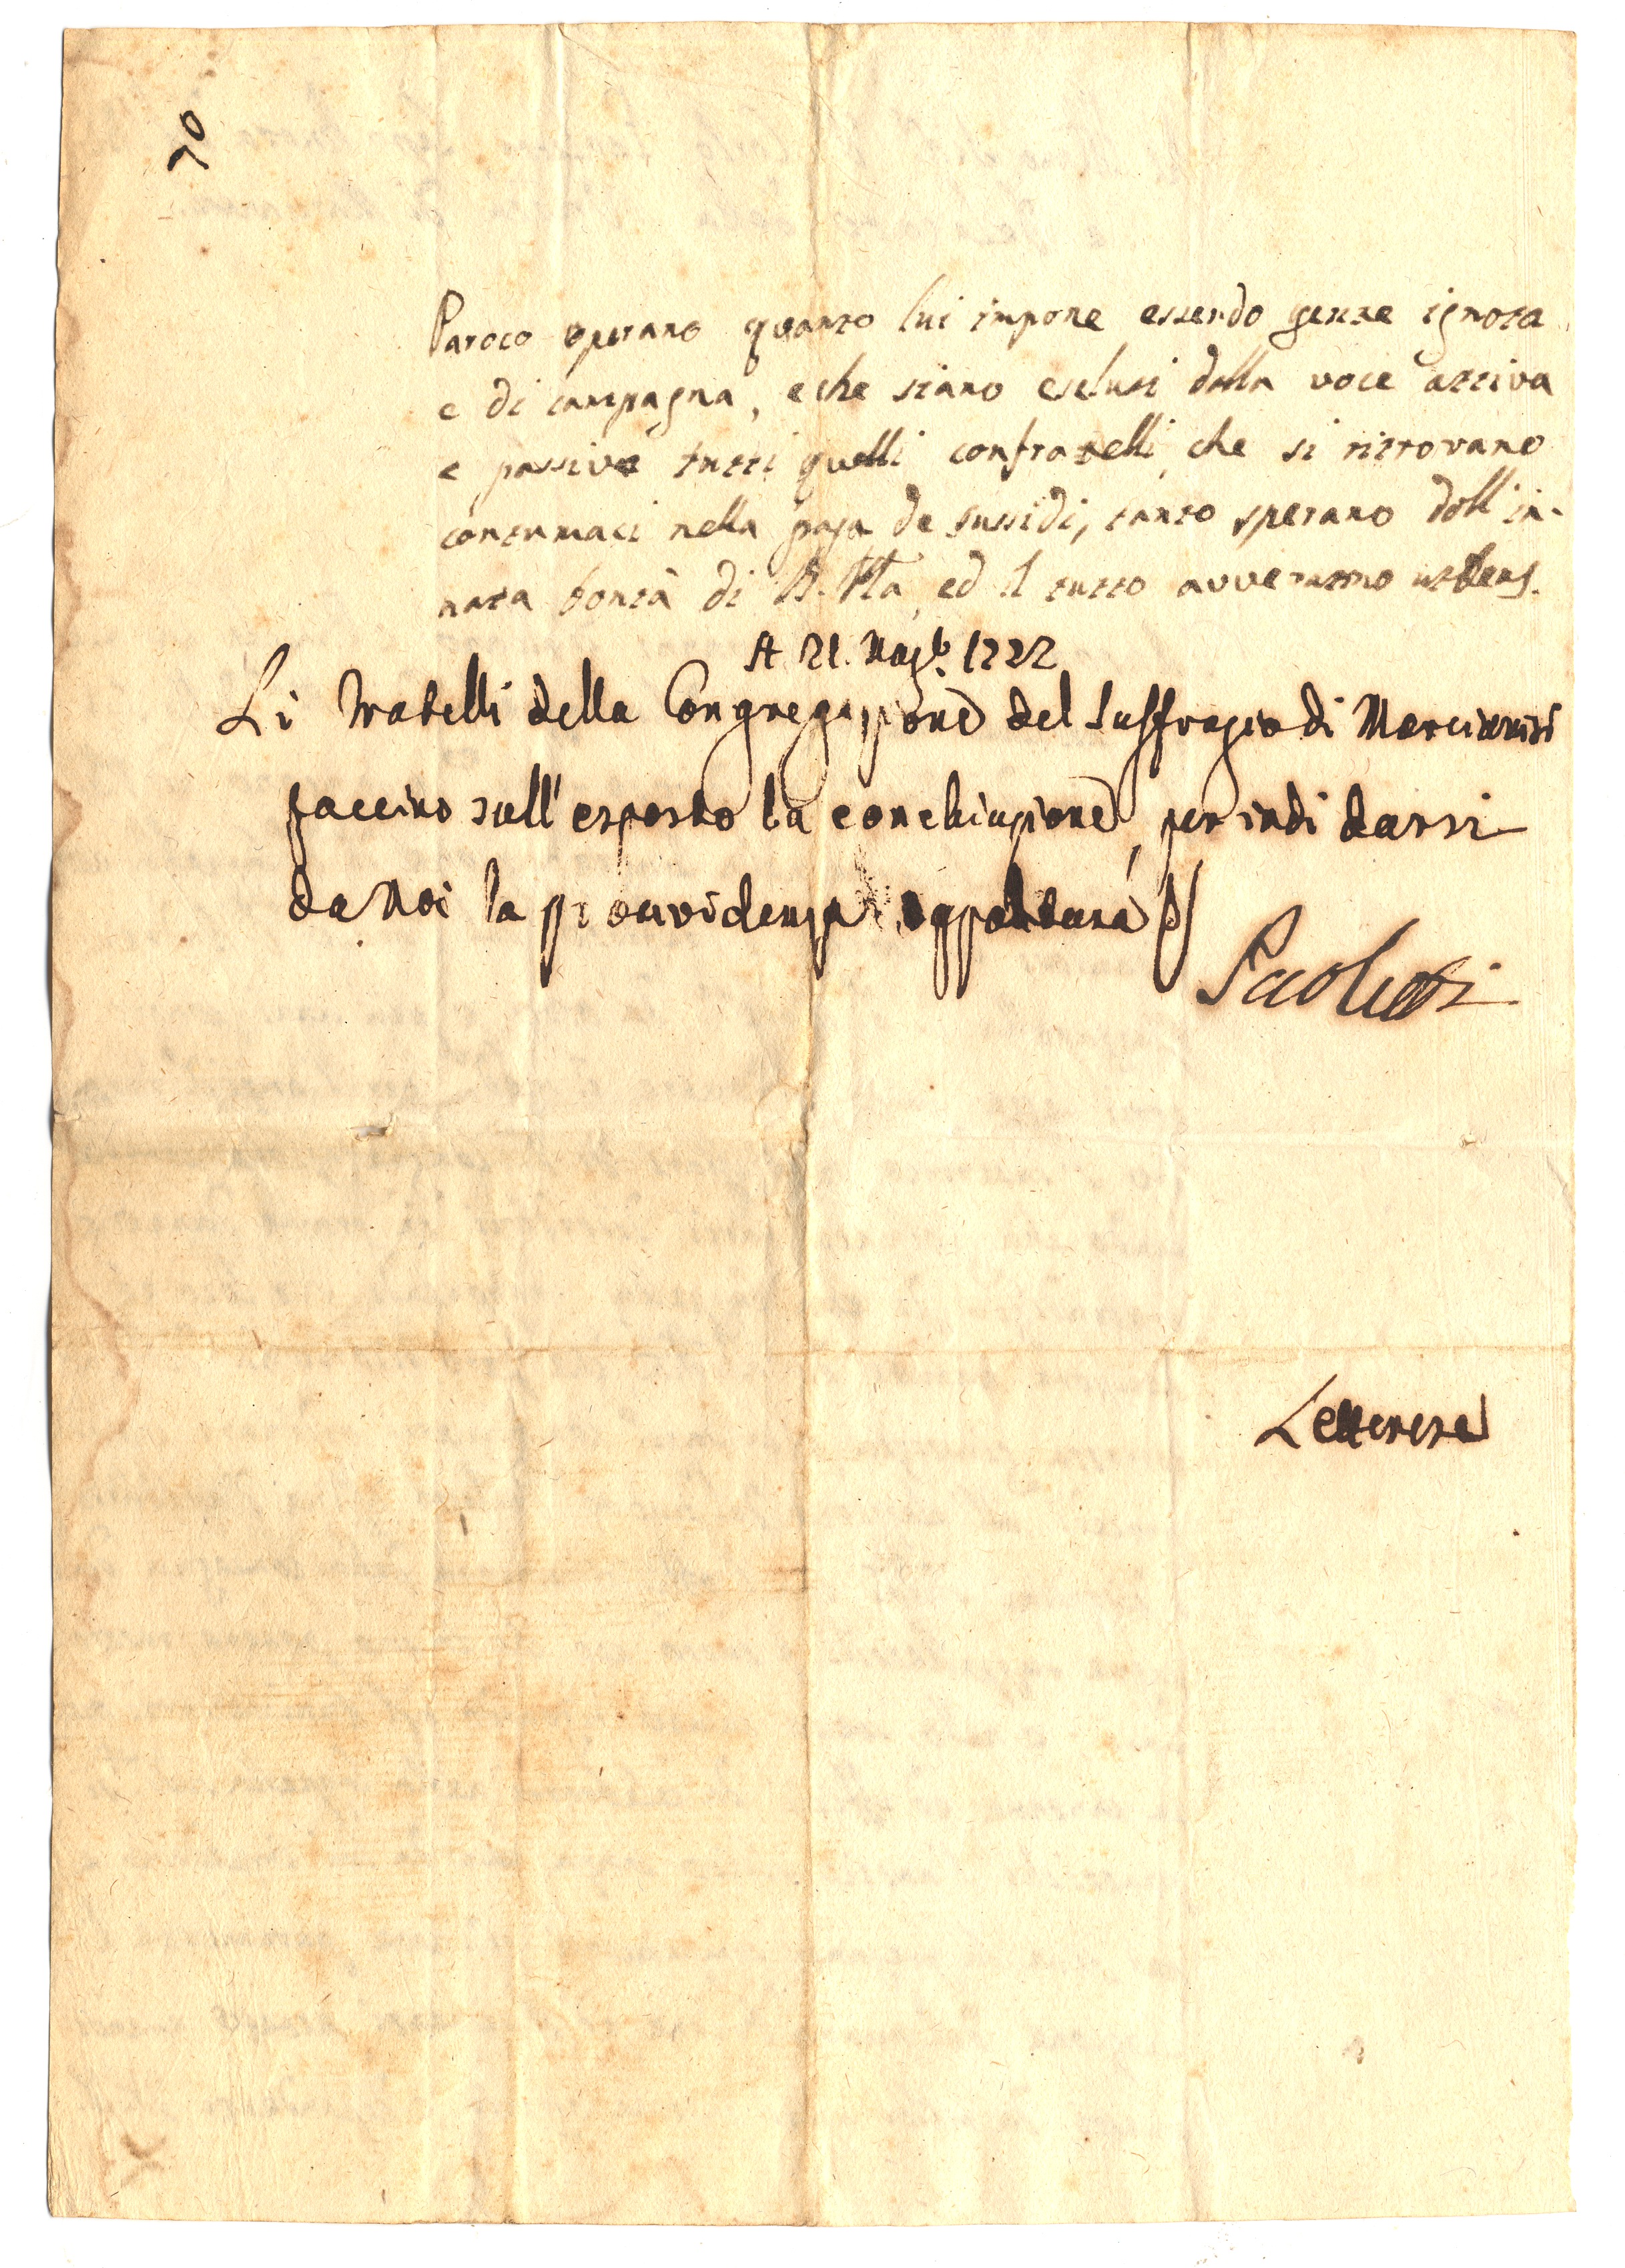 70
Paroco operano quanto lui impone essendo gente ignota
e di campagna, e che siano esclusi dalla voce attiva
e passiva tutti quelli confratelli che si ritrovano
contumaci nella paga de sussidi, tanto sperano dall'in-
nata bontà di ed il tutto avveranno
A 21.
Li Fratelli della Congregazione del Suffragio di Marcianisi
faccino sull'esposto la conchiuzione, per indi darsi
da Noi la providenza
Paoletti